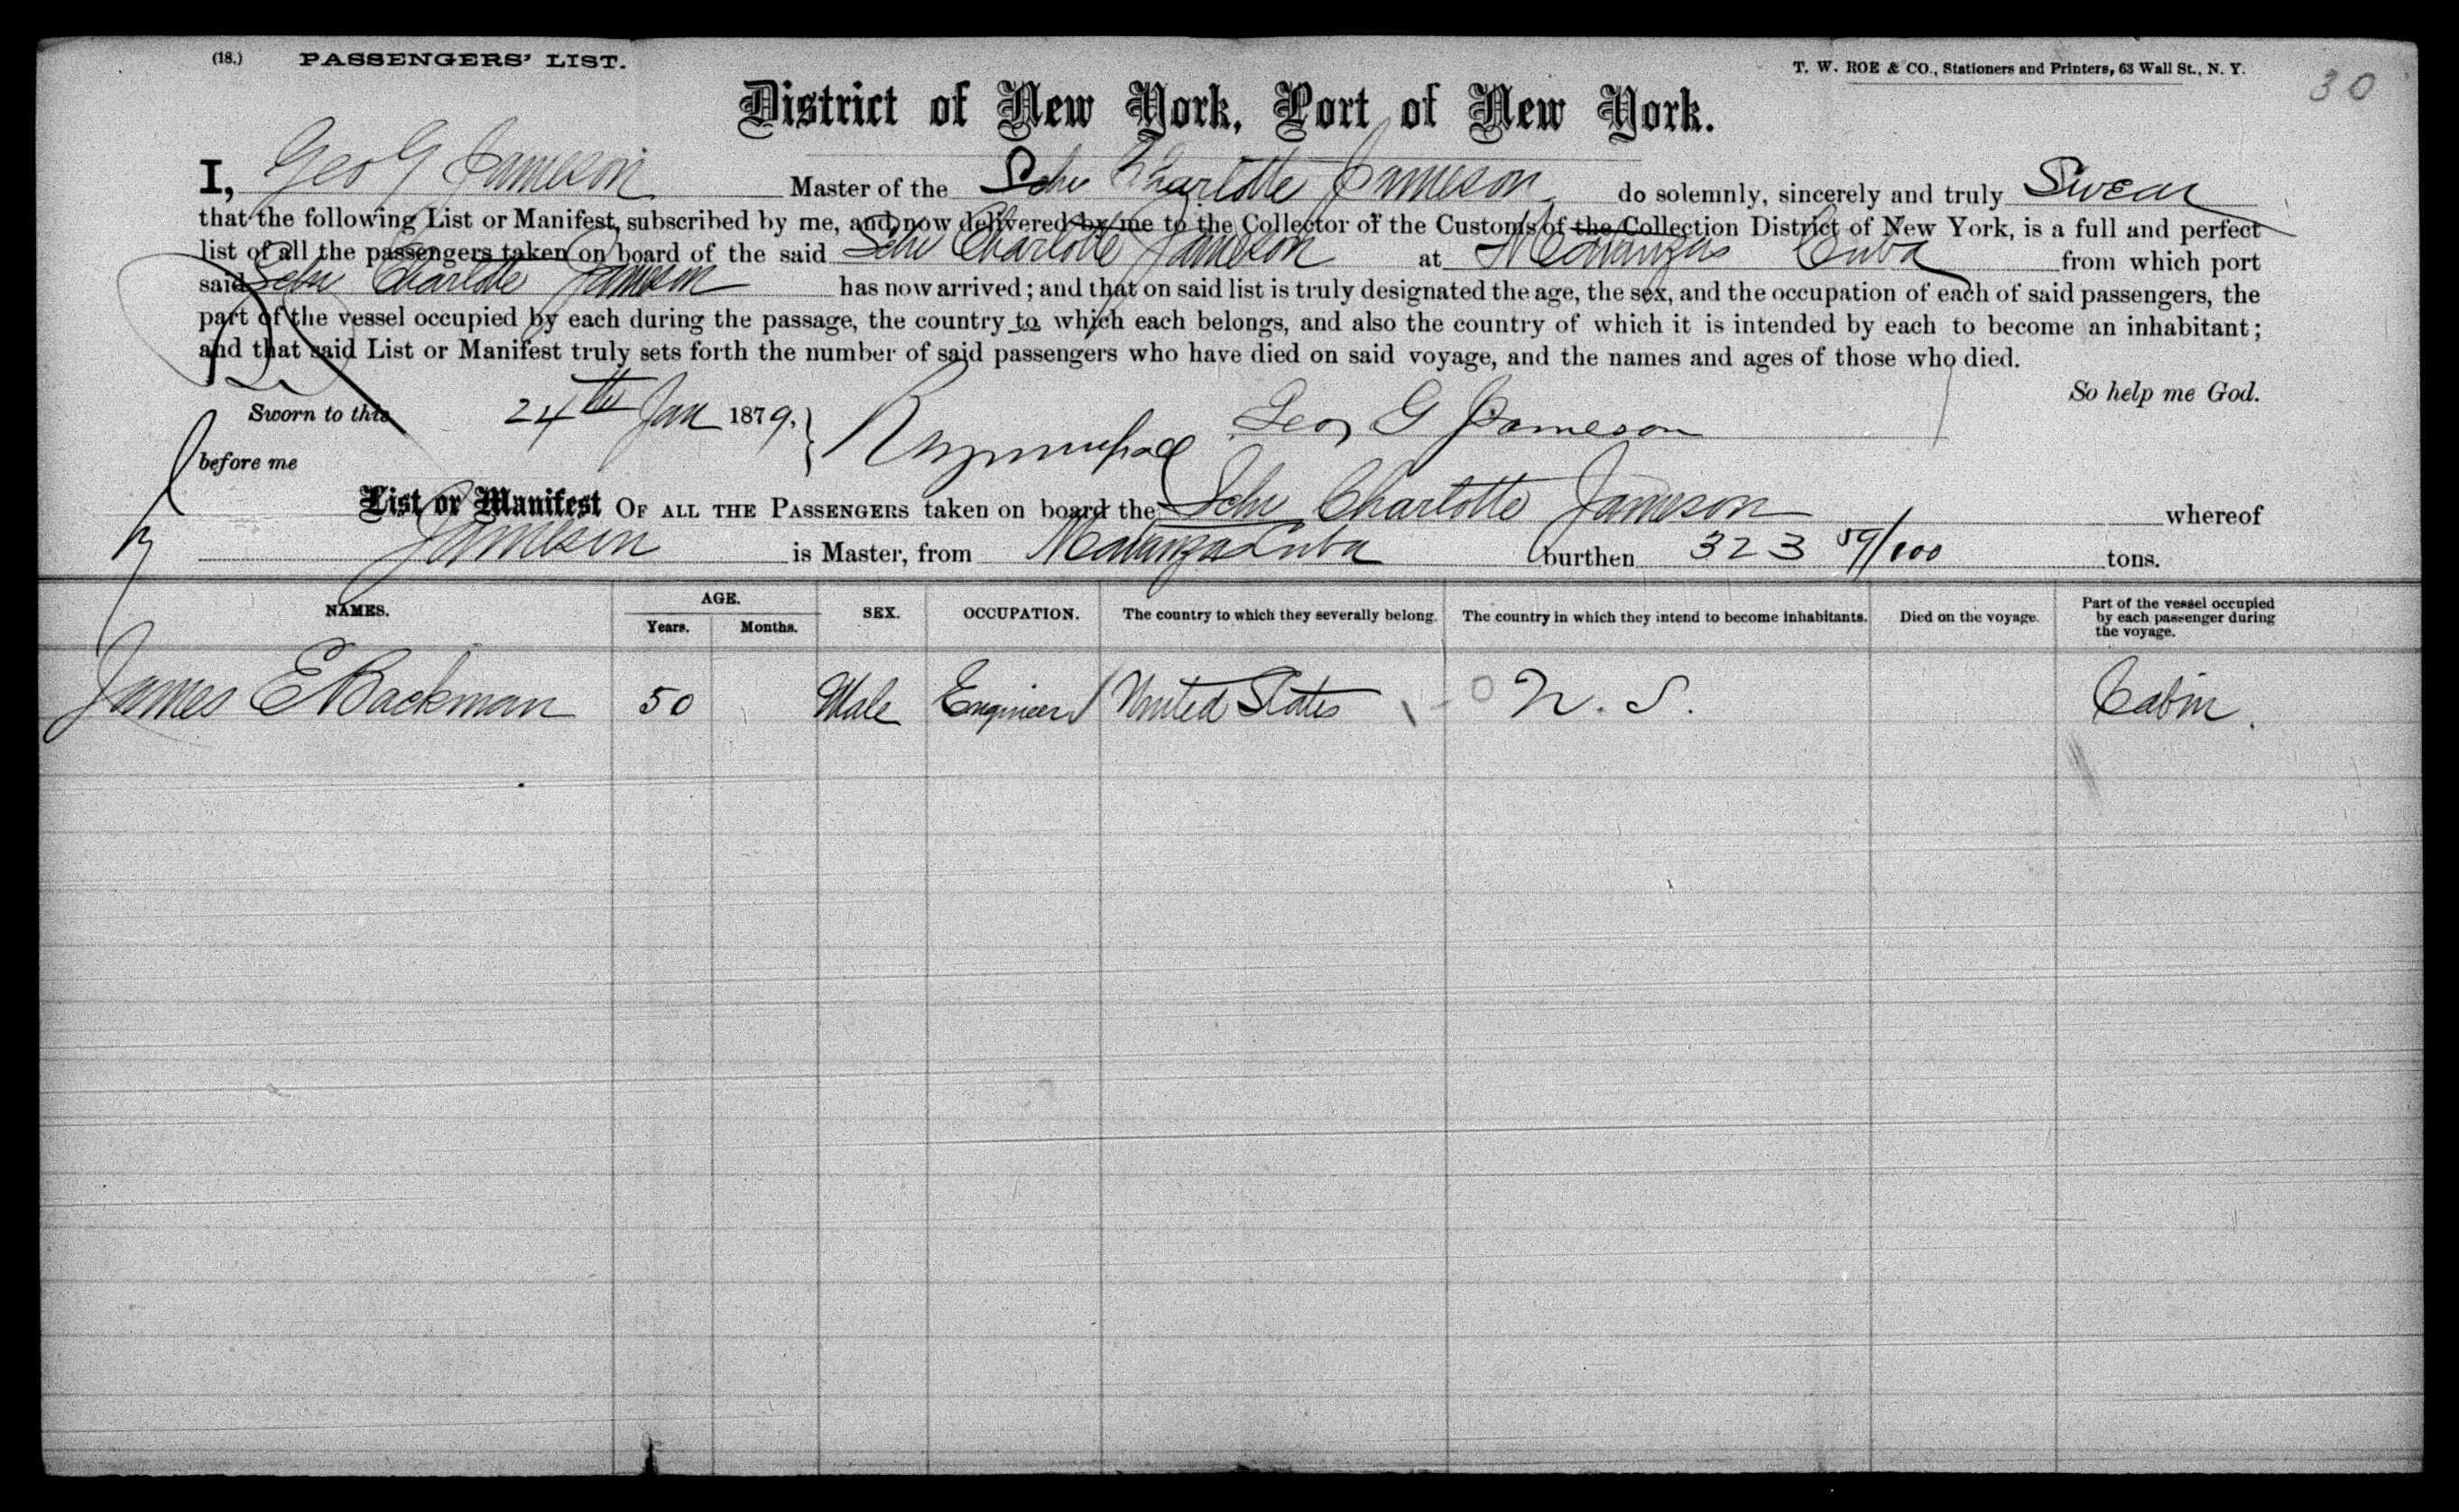 (18.) PASSENGERS' LIST.
T. W. ROE & CO., Stationers and Printers, 63 Wall St., N. Y.
30
District of New York, Port of New York.
I, Geo G Jameson Master of the Schr Charlotte Jameson do solemnly, sincerely and truly Swear
that the following List or Manifest, subscribed by me, and now delivered by me to the Collector of the Customs of the Collection District of New York, is a full and perfect
list of all the passengers taken on board of the said Schr Charlotte Jameson at Matanzas Cuba from which port
said Schr Charlotte Jameson has now arrived; and that on said list is truly designated the age, the sex, and the occupation of each of said passengers, the
part of the vessel occupied by each during the passage, the country to which each belongs, and also the country of which it is intended by each to become an inhabitant;
and that said List or Manifest truly sets forth the number of said passengers who have died on said voyage, and the names and ages of those who died.
So help me God.
Sworn to this 24th Jan 1879. Geo G Jameson
before me
List or Manifest OF ALL THE PASSENGERS taken on board the Schr Charlotte Jameson whereof
Jameson is Master, from Matanzas Cuba burthen 323 59/100 tons.
NAMES. AGE. Years. Months. SEX. OCCUPATION. The country to which they severally belong. The country in which they intend to become inhabitants. Died on the voyage. Part of the vessel occupied by each passenger during the voyage.
James E Backman 50 Male Engineer United States U. S. Cabin.